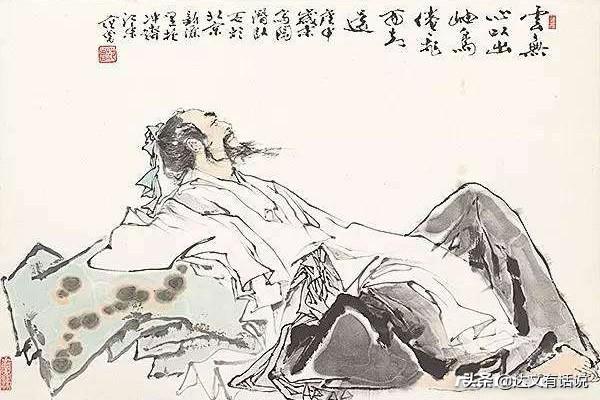 雲無
心以出
岫鳥
倦飛
而知
還
庚申
歲末
寫陶
潛
於
北京
新源
里抱
冲齋
江東
范曾
头条 @达文有话说